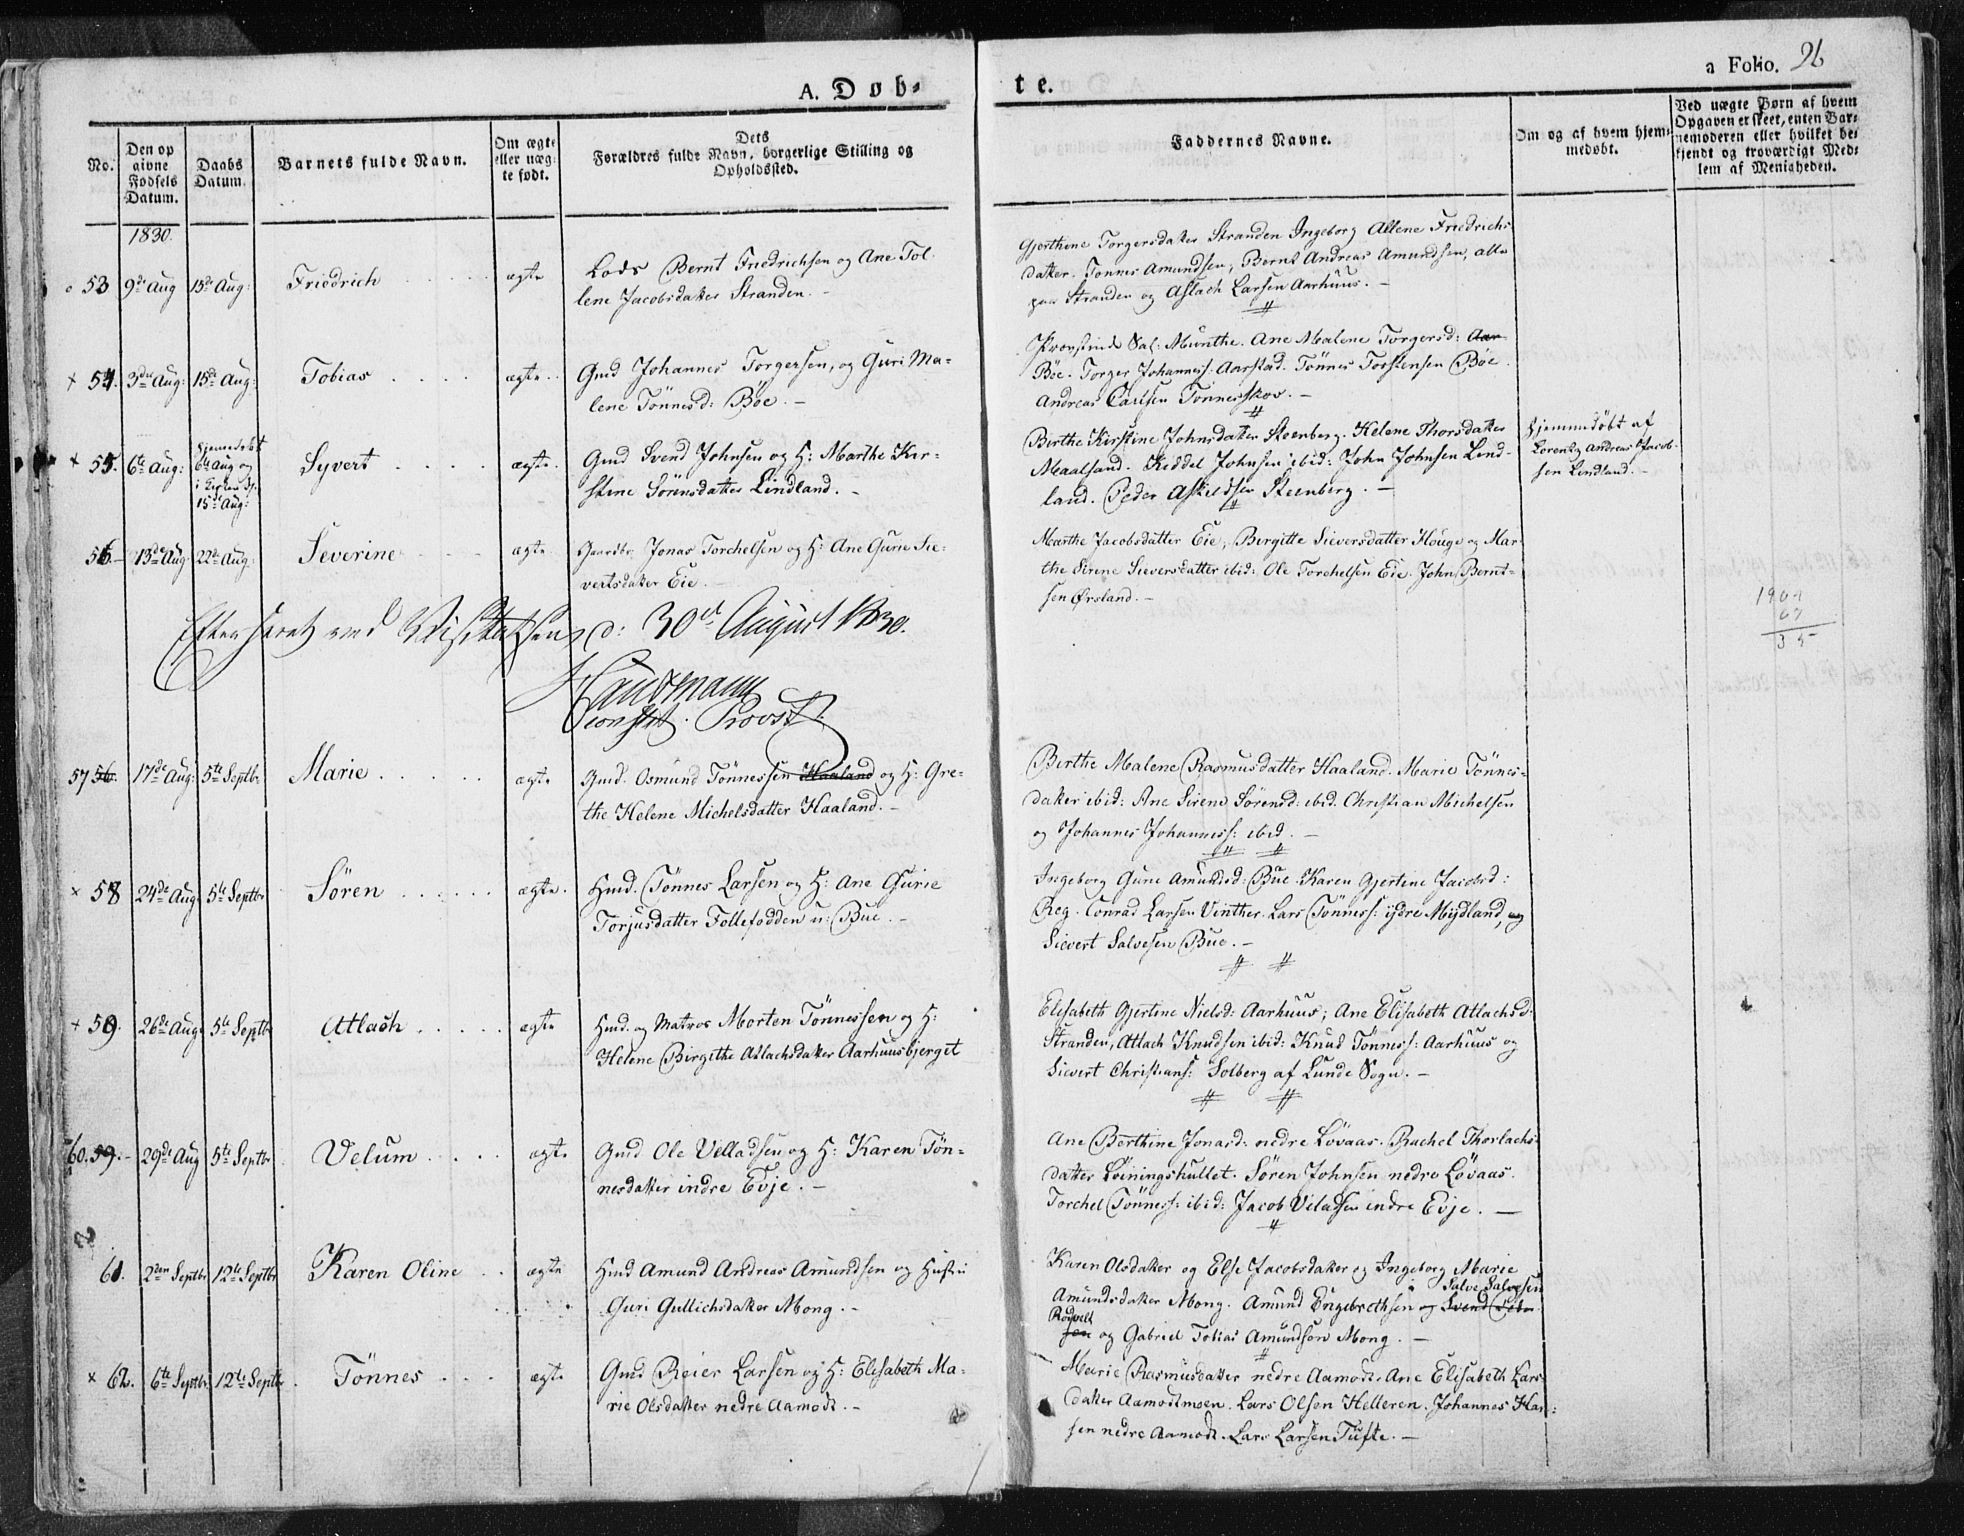 A. Døb-
te.
a Folio. 26
No.
Den op
givne
Fødsels
Datum.
Daabs
Datum.
Barnets fulde Navn.
Om ægte
eller uæg-
te født.
Dets
Forældres fulde Navn, borgerlige Stilling og
Opholdssted.
Faddernes Navne.
Om og af hvem hjem-
medøbt.
Ved uægte Børn af hvem
Opgaven er skeet, enten Bar-
nemoderen eller hvilket be-
kjendt og troværdigt Med-
lem af Menigheden.
1830.
53 9de Aug 15de Aug: Friedrich ægte
Lods Bernt Friedrichsen og Ane Tol-
lene Jacobsdatter Stranden. -
Gjerthine Torgersdatter Stranden Ingeborg Allene Friedrichs
datter. Tønnes Amundsen, Bernt Andreas Amundsen, alle
paa Stranden og Aslach Larsen Aarhuus. -
54. 3die Aug: 15de Aug: Tobias ægte
Gmd Johannes Torgersen, og Guri Ma-
lene Tønnesd: Bøe. -
Provstinde Sal: Munthe. Ane Malene Torgersd: Aar
Bøe. Torger Johanness: Aarstad. Tönnes Torstensen Bøe.
Andreas Carlsen Tönnesskov. -
55. 6te Aug: hjemmedøbt
6te Aug og
i Kirken d.
15de Aug: Syvert ægte
Gmd Svend Johnsen og H: Marthe Kir-
stine Sörensdatter Lindland. -
Birthe Kirstine Johnsdatter Steenberg. Helene Thorsdatter
Maalsand. Keddel Johnsen ibid: John Johnsen Lind-
land. Peder Askildsen Steenberg. -
Hjemmedöbt af
Lorentz Andreas Jacob-
sen Lindland. -
56. - 13de Aug: 22de Aug: Severine ægte
Gaardbr. Jonas Torchelsen og H: Ane Gurie Sie-
vertsdatter Eie. -
Marthe Jacobsdatter Eie, Birgitte Sieversdatter Houge og Mar-
the Sirene Sieversdatter ibid: Ole Torchelsen Eie. John Bernt-
sen Ørsland. -
1902
67
35
Efterseet ved Visitatsen d: 30te August 1830.
const. Provst.
57 56. 17de Aug: 5te Septbr Marie ægte
Gmd. Osmund Tönnessen Haaland og H: Gre-
the Helene Michelsdatter Haaland. -
Birthe Malene Rasmusdatter Haaland. Marie Tönnes-
datter ibid: Ane Sirene Sörensd: ibid. Christian Michelsen
og Johannes Johanness: ibid. -
58 24de Aug: 5te Septbr Sören ægte.
Hmd. Tönnes Larsen og H: Ane Gurie
Torjusdatter Follefodden u: Bue. -
Ingeborg Gurie Amundsd: Bue. Karen Gjertine Jacobsd:
Reg. Conrad Larsen Vinther. Lars Tönness: ydre Mydland, og
Sievert Salvesen Bue. -
59. 26de Aug: 5te Septbr Atlach ægte
Hmd. og Matros Morten Tönnessen og H:
Helene Birgithe Atlachsdatter Aarhuusbjerget
Elisabeth Gjertine Nielsd: Aarhuus; Ane Elisabeth Atlachsd:
Stranden, Atlach Knudsen ibid: Knud Tönness: Aarhuus og
Sievert Christians: Solberg af Lunde Sogn. -
60. 59. - 29de Aug 5te Septbr Velum ægte
Gmd Ole Velladsen og H: Karen Tön-
nesdatter indre Evje. -
Ane Berthine Jonasd: nedre Lövaas. Rachel Thorlachs-
datter Løiningshullet. Sören Johnsen nedre Lövaas.
Torchel Tönness: ibid: Jacob Veladsen indre Evje. -
61. 2den Septbr 12te Septbr Karen Oline ægte
Hmd Amund Andreas Amundsen og Hustru
Guri Gullichsdatter Mong. -
Karen Olsdatter og Else Jacobsdatter og Ingeborg Marie
Amundsdatter Mong. Amund Engebrethsen og Salve Salvesen
Rødvelt
sen og Gabriel Tobias Amundsen Mong. -
62. 6te Septbr 12te Septbr Tönnes ægte
Gmd Reier Larsen og H: Elisabeth Ma-
rie Olsdatter nedre Aamodt. -
Marie Rasmusdatter nedre Aamodt. Ane Elisabeth Lars-
datter Aamodtmoen. Lars Olsen Helleren. Johannes Han-
sen nedre Aamodt. Lars Larsen Tufte. -